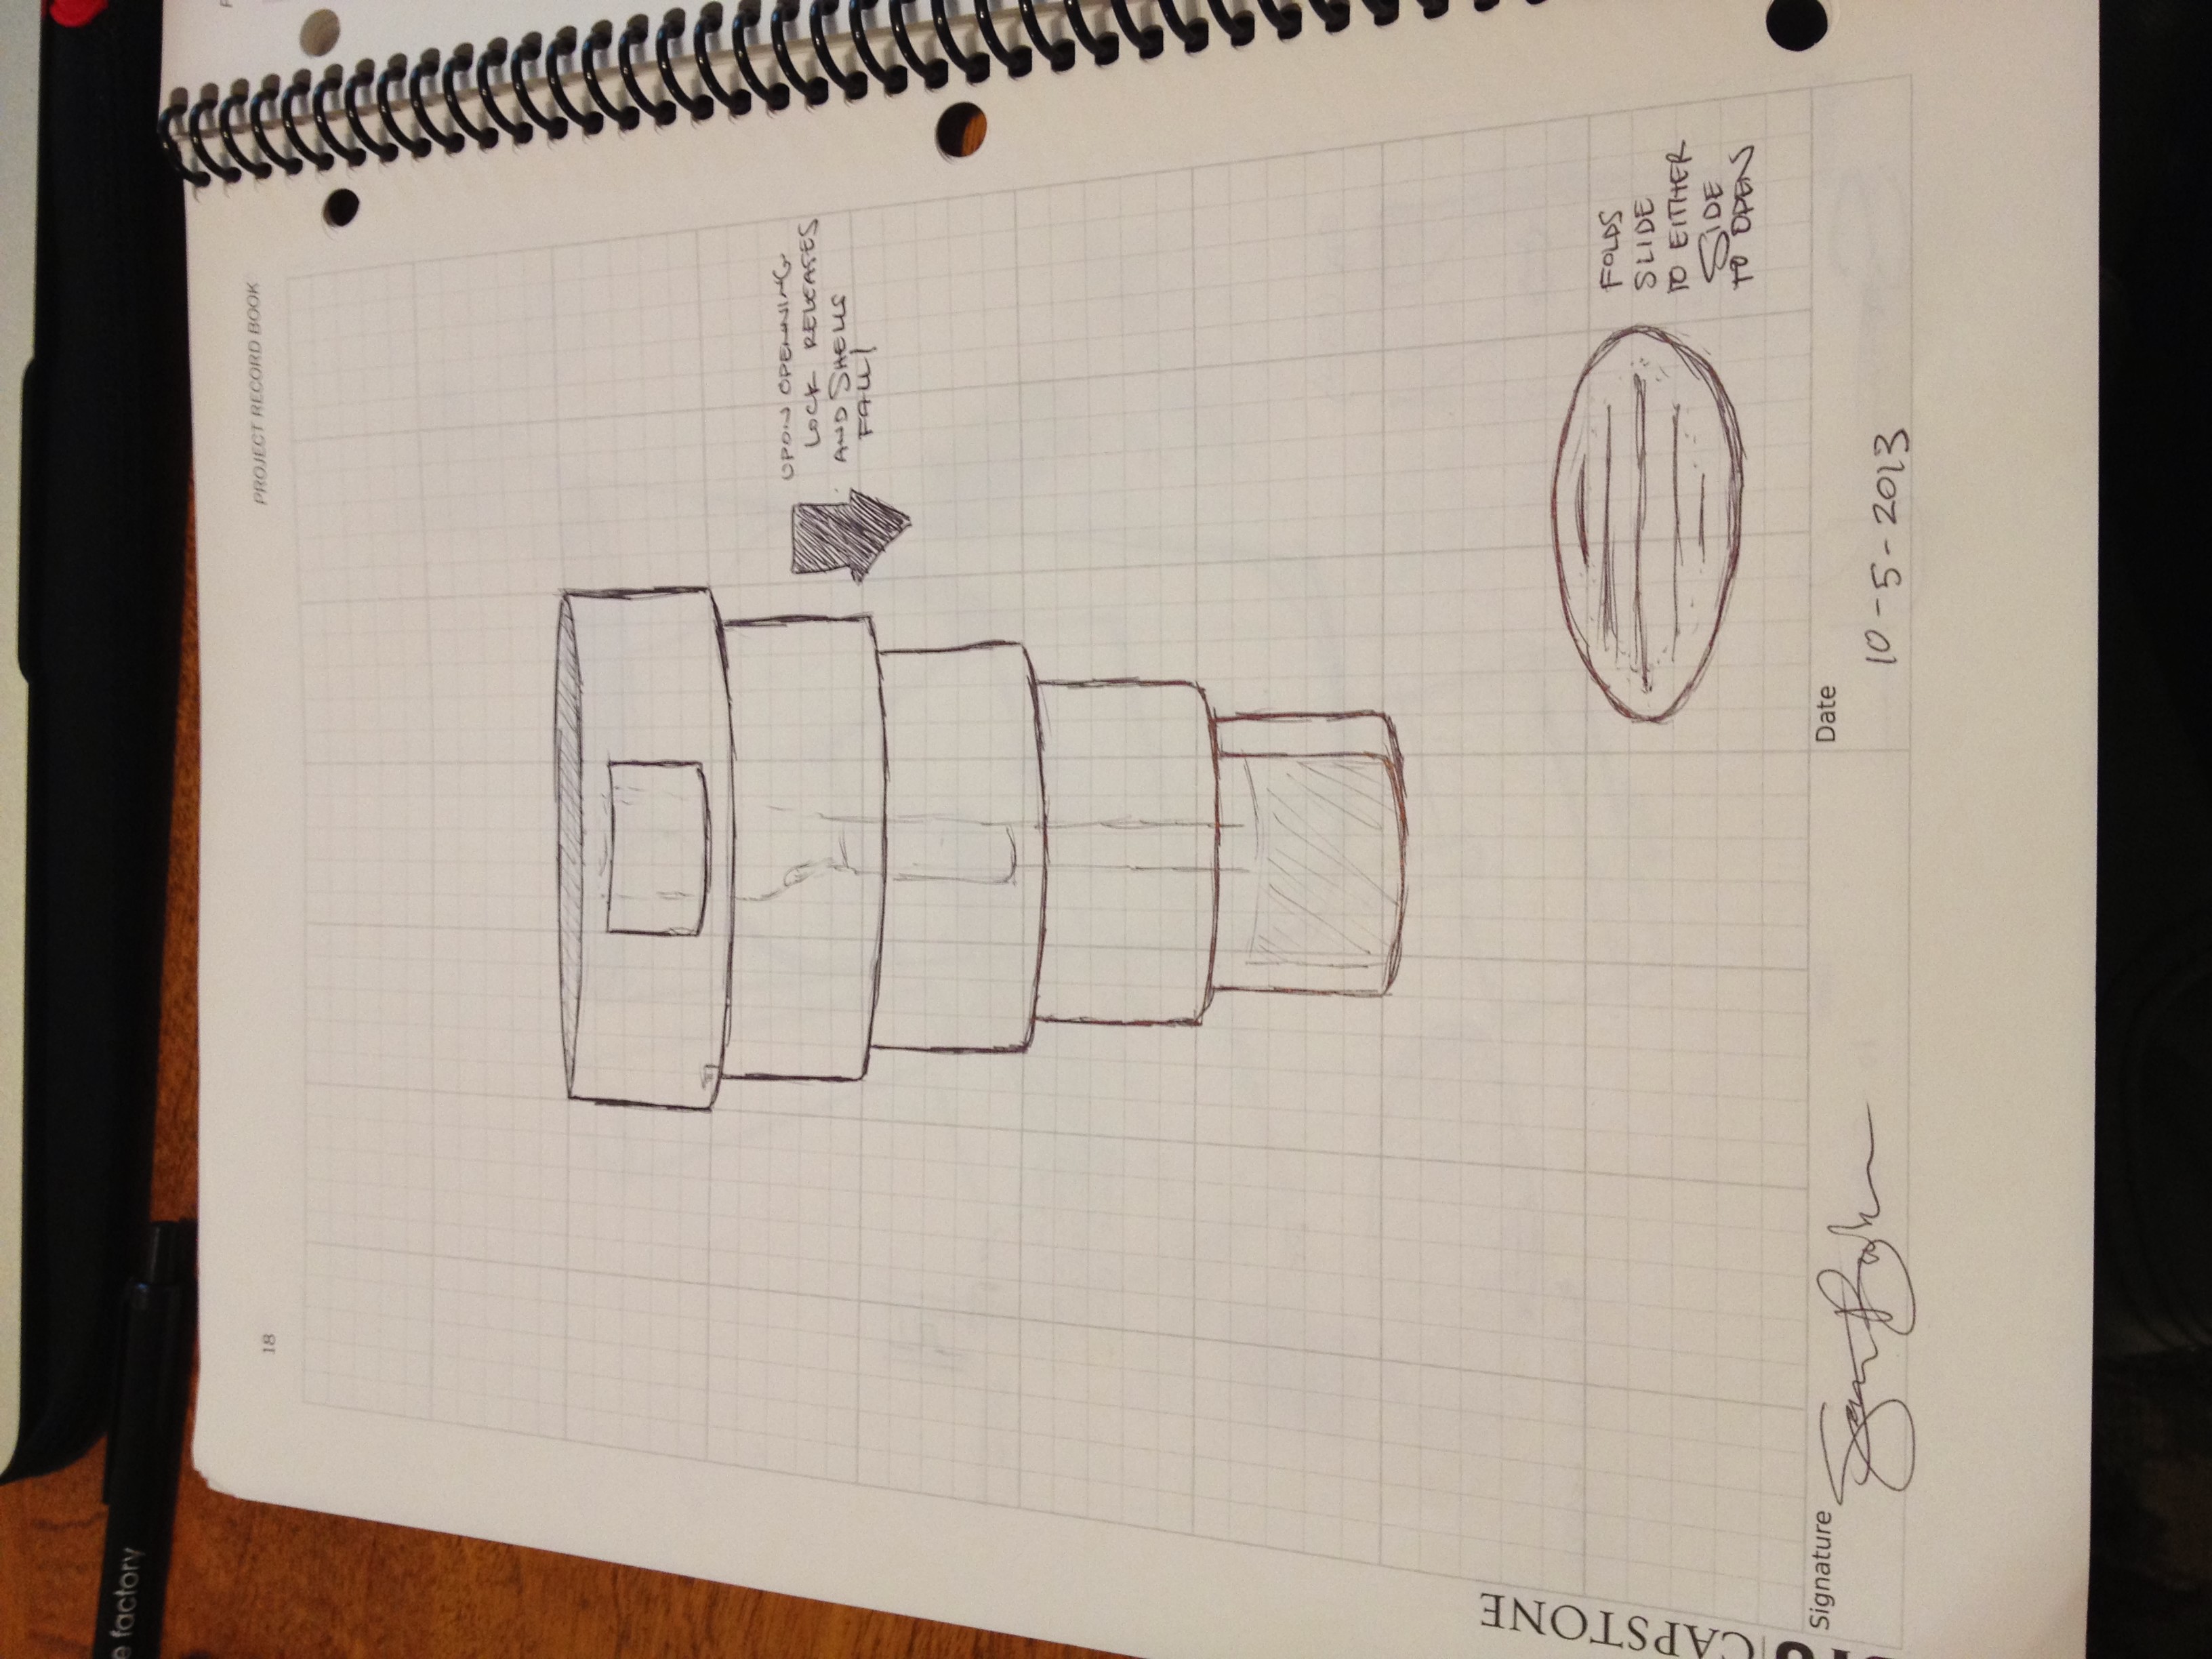 18
PROJECT RECORD BOOK
UPON OPENNING
LOCK RELEASES
AND SHELLS
FALL
FOLDS
SLIDE
TO EITHER
SIDE
TO OPEN
CAPSTONE
Signature
Date
10-5-2013
e factory